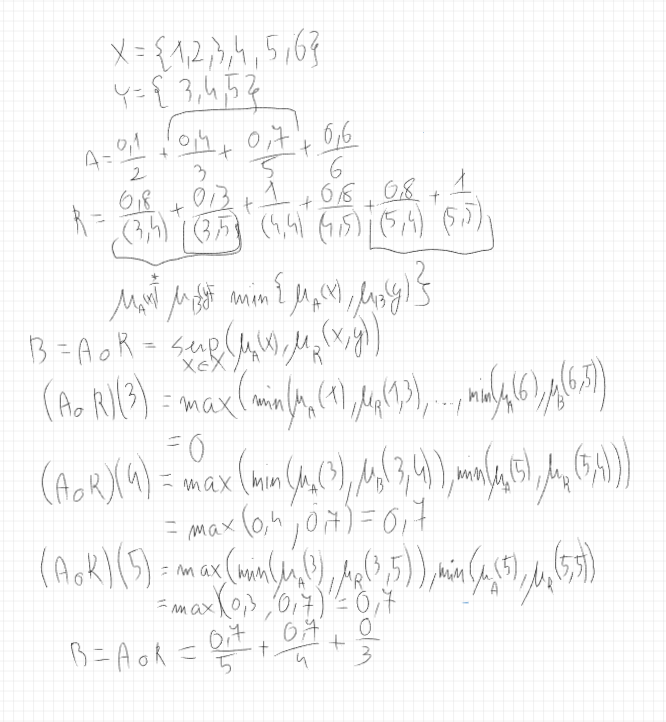 X = {1,2,3,4,5,6}
Y = { 3,4,5}
A = 0,1/2 + 0,4/3 + 0,7/5 + 0,6/6
R = 0,8/(3,4) + 0,3/(3,5) + 1/(4,4) + 0,8/(4,5) + 0,8/(5,4) + 1/(5,5)
μA(x) * μB(y) = min{μA(x), μB(y)}
B = A∘R = sup x∈X (μA(x), μR(x,y))
(A∘R)(3) = max(min(μA(1), μR(1,3), ..., min(μA(6), μB(6,5))
= 0
(A∘R)(4) = max(min(μA(3), μB(3,4)), min(μA(5), μR(5,4)))
= max(0,4, 0,7) = 0,7
(A∘R)(5) = max(min(μA(3), μR(3,5)), min(μA(5), μR(5,5))
= max(0,3, 0,7) = 0,7
B = A∘R = 0,7/5 + 0,7/4 + 0/3